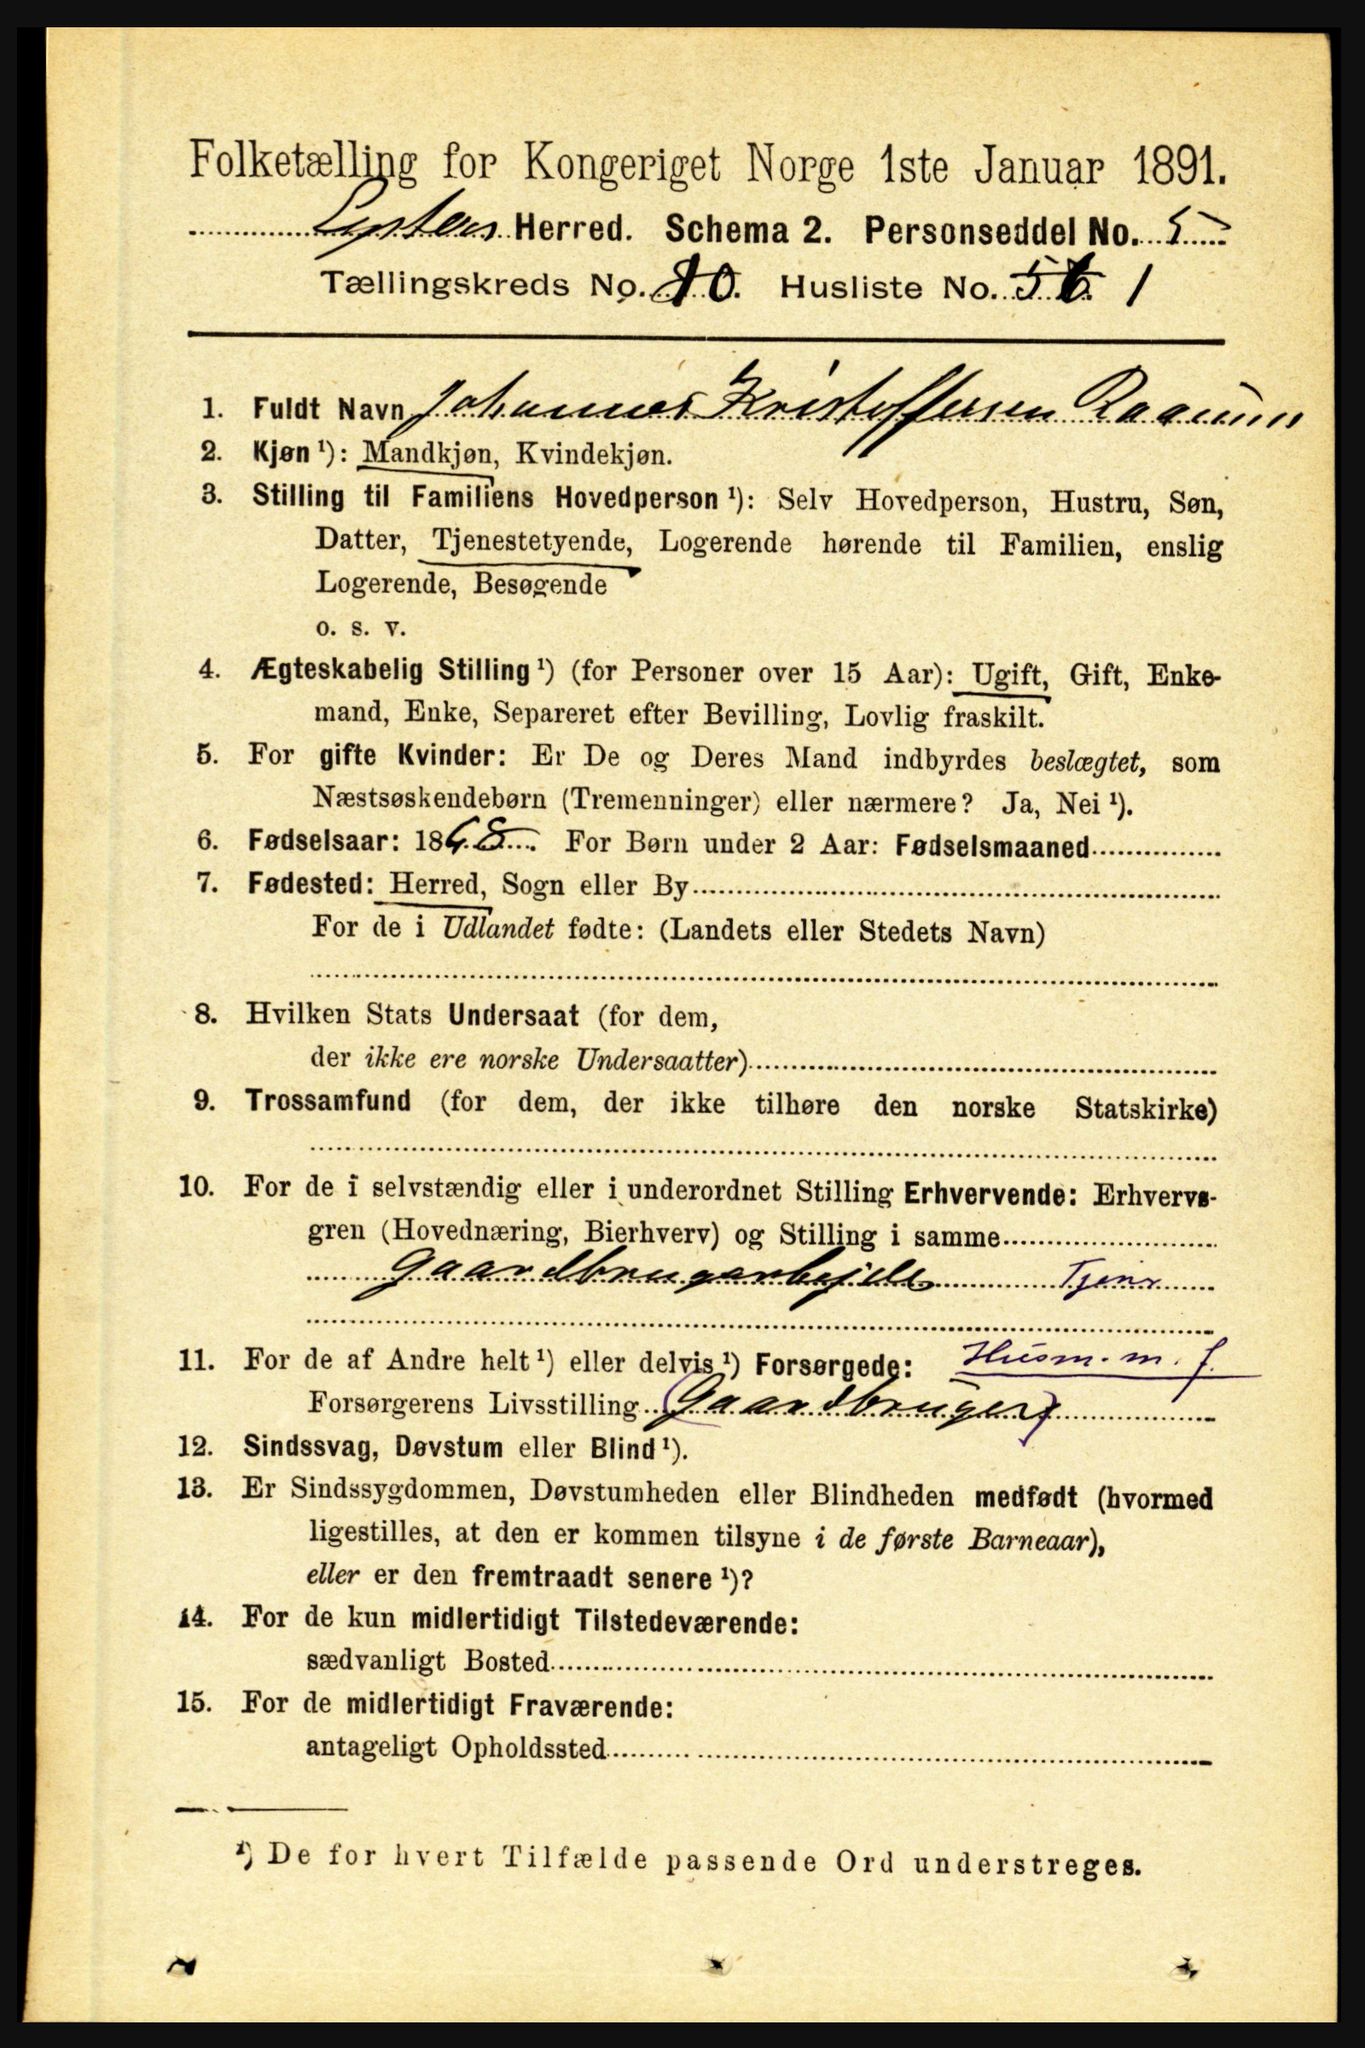 Folketælling for Kongeriget Norge 1ste Januar 1891.
Lysters Herred. Schema 2. Personseddel No. 5
Tællingskreds No. 10. Husliste No. 1
1. Fuldt Navn Johannes Kristoffersen Raaum
2. Kjøn ¹): Mandkjøn, Kvindekjøn.
3. Stilling til Familiens Hovedperson ¹): Selv Hovedperson, Hustru, Søn,
Datter, Tjenestetyende, Logerende hørende til Familien, enslig
Logerende, Besøgende
o. s. v.
4. Ægteskabelig Stilling ¹) (for Personer over 15 Aar): Ugift, Gift, Enke-
mand, Enke, Separeret efter Bevilling, Lovlig fraskilt.
5. For gifte Kvinder: Er De og Deres Mand indbyrdes beslægtet, som
Næstsøskendebørn (Tremenninger) eller nærmere? Ja, Nei ¹).
6. Fødselsaar: 1868. For Børn under 2 Aar: Fødselsmaaned
7. Fødested: Herred, Sogn eller By
For de i Udlandet fødte: (Landets eller Stedets Navn)
8. Hvilken Stats Undersaat (for dem,
der ikke ere norske Undersaatter)
9. Trossamfund (for dem, der ikke tilhøre den norske Statskirke)
10. For de i selvstændig eller i underordnet Stilling Erhvervende: Erhvervs-
gren (Hovednæring, Bierhverv) og Stilling i samme
Gaardbrugarbejde Tjener
11. For de af Andre helt ¹) eller delvis ¹) Forsørgede: Husm. m. J.
Forsørgerens Livsstilling (Gaardbruger)
12. Sindssvag, Døvstum eller Blind ¹).
13. Er Sindssygdommen, Døvstumheden eller Blindheden medfødt (hvormed
ligestilles, at den er kommen tilsyne i de første Barneaar),
eller er den fremtraadt senere ¹)?
14. For de kun midlertidigt Tilstedeværende:
sædvanligt Bosted
15. For de midlertidigt Fraværende:
antageligt Opholdssted
¹) De for hvert Tilfælde passende Ord understreges.